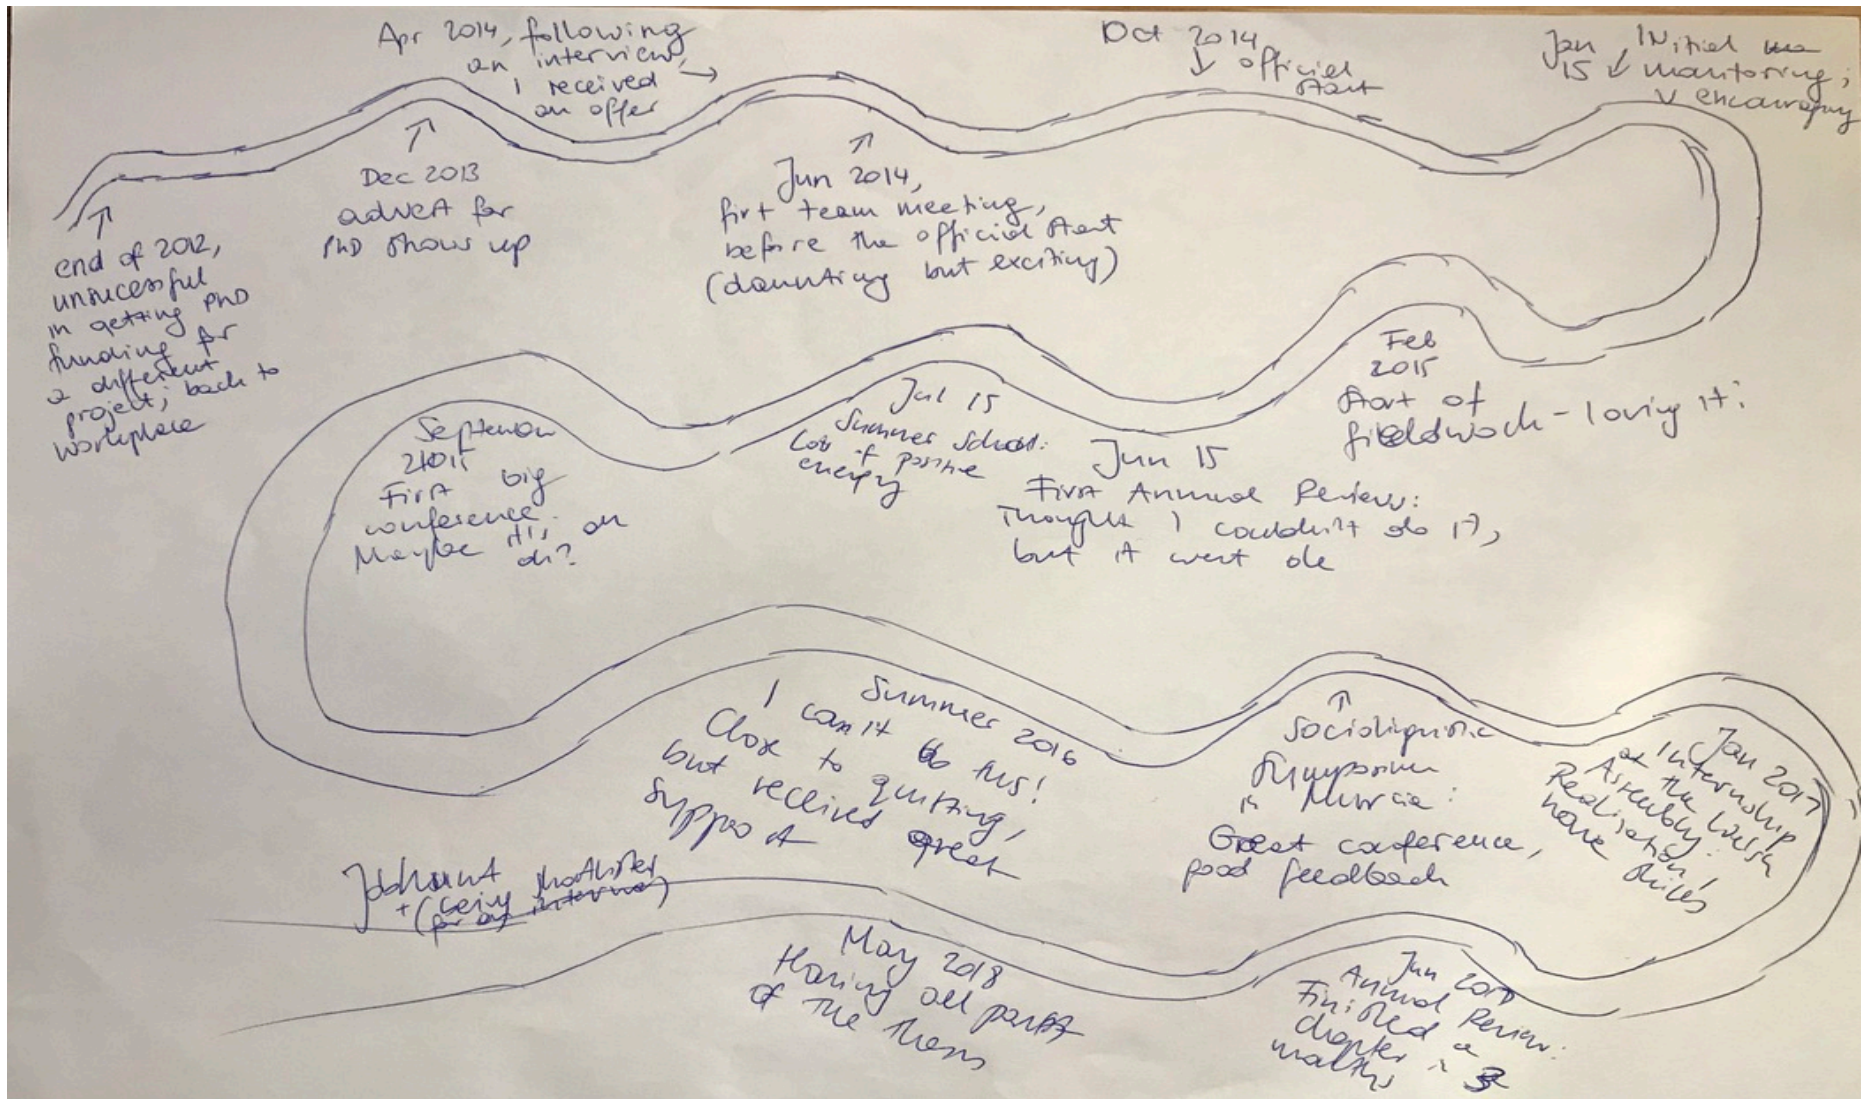 end of 2012,
unsuccessful
in getting PhD
funding for
a different
project; back to
workplace
Dec 2013
advert for
PhD shows up
Apr 2014, following
an interview,
I received
an offer
Jun 2014,
firt team meeting,
before the official start
(daunting but exciting)
Oct 2014
official
start
Jan
15
Initial
mantoring;
encouraging
Feb
2015
Start of
fieldwork - loving it!
Jun 15
First Annual Review:
Thought I couldn't do it,
but it went ok
Jul 15
Summer School:
Lots of positive
energy
September
2015
First big
conference.
Maybe it's
ok?
Summer 2016
I can't do this!
Close to quitting,
but received great
support
Sociolinguistic
Symposium
in Murcia:
Great conference,
good feedback
Jan 2017
Internship
at the Welsh
Assembly:
Realisation I
have skills
Jun 2017
Annual Review:
Finished a
chapter in 3
months
May 2018
Having all parts
of the thesis
Jobhunt
+ (being shortlisted
for an interview)